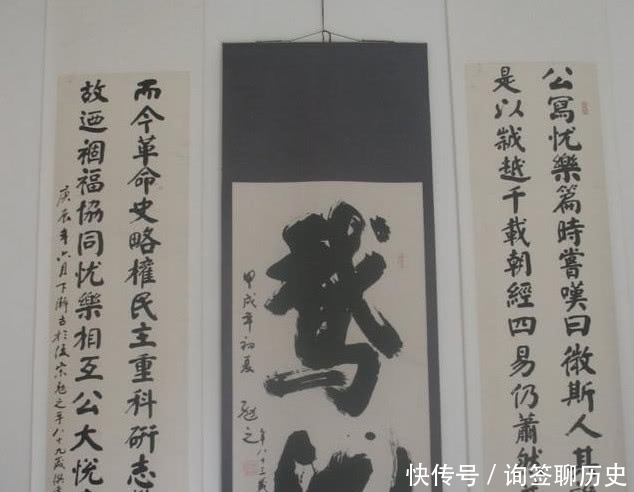 公寫忧樂篇時嘗嘆曰微斯人其
是以越千載朝經四易仍蕭然
鵞
甲戌年初夏
勉之
年八十三歲
而今革命史略權民主重科研志
故迺禍福協同忧樂相互公大悅
庚辰年六月下澣书於勉之年八十九歲
快传号／询签聊历史